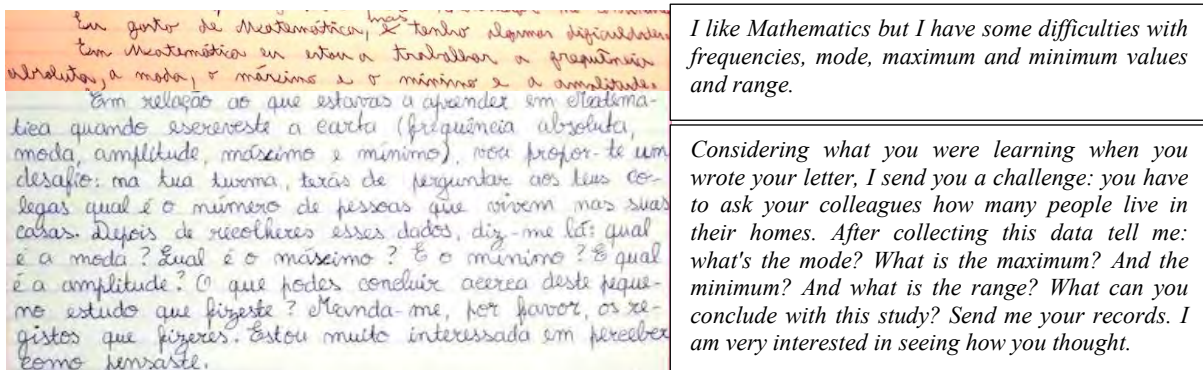 Eu gosto de Matemática, mas tenho algumas dificuldades
Em Matemática eu estou a trabalhar a frequência
absoluta, a moda, o máximo e o mínimo e a amplitude.
Em relação ao que estavas a aprender em Matemá-
tica quando escreveste a carta (frequência absoluta,
moda, amplitude, máximo e mínimo), vou propor-te um
desafio: na tua turma, terás de perguntar aos teus co-
legas qual é o número de pessoas que vivem nas suas
casas. Depois de recolheres esses dados, diz-me lá: qual
é a moda? Qual é o máximo? E o mínimo? E qual
é a amplitude? O que podes concluir acerca deste peque-
no estudo que fizeste? Manda-me, por favor, os re-
gistos que fizeres. Estou muito interessada em perceber
como pensaste.
I like Mathematics but I have some difficulties with
frequencies, mode, maximum and minimum values
and range.
Considering what you were learning when you
wrote your letter, I send you a challenge: you have
to ask your colleagues how many people live in
their homes. After collecting this data tell me:
what's the mode? What is the maximum? And the
minimum? And what is the range? What can you
conclude with this study? Send me your records. I
am very interested in seeing how you thought.